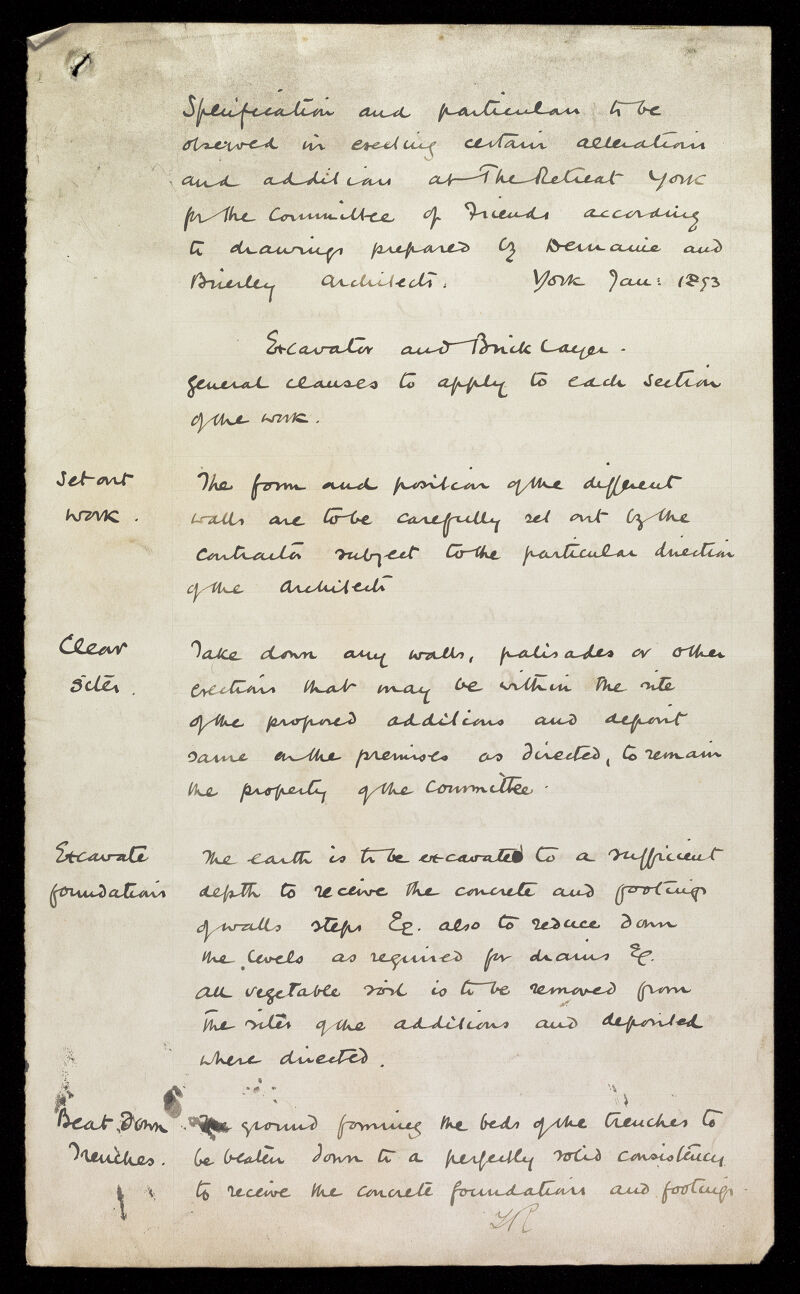 1
Specification and particulars to be
observed in erecting certain alterations
and additions at The Retreat York
for the Committee of Friends according
to drawings prepared by Demaine and
Brierley Architects. York Jan: 1893
Excavator and Bricklayer.
General clauses to apply to each section
of the work.
Set out
work.
The form and position of the different
walls are to be carefully set out by the
contractor subject to the particular direction
of the Architects
Clear
sites.
Take down any walls, palisades or other
erections that may be within the site
of the proposed additions and deposit
same on the premises as directed, to remain
the property of the Committee.
Excavate
foundations
The earth is to be excavated to a sufficient
depth to receive the concrete and footings
of walls steps &c. also to reduce down
the levels as required for drains &c.
All vegetable soil is to be removed from
the sites of the additions and deposited
where directed.
Beat Down
Trenches.
The ground forming the beds of the trenches to
be beaten down to a perfectly solid consistency
to receive the concrete foundations and footings.